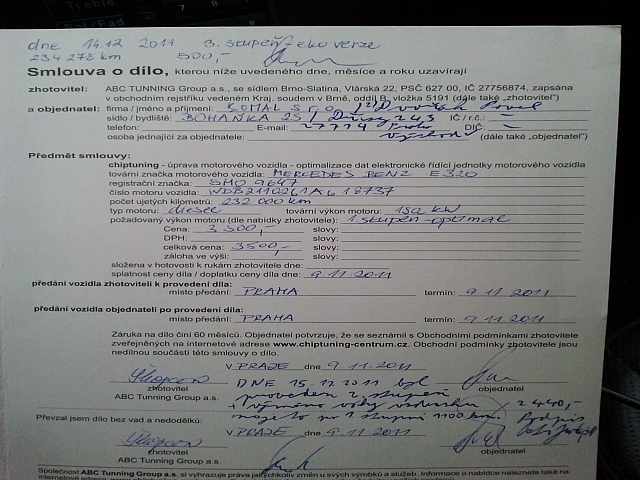 dne 14.12 2011 3. stupeň - eko verze
234 278 km 500,-
Smlouva o dílo, kterou níže uvedeného dne, měsíce a roku uzavírají
zhotovitel: ABC TUNNING Group a.s., se sídlem Brno-Slatina, Vlárská 22, PSČ 627 00, IČ 27756874, zapsána
v obchodním rejstříku vedeném Kraj. soudem v Brně, oddíl B, vložka 5191 (dále také „zhotovitel")
a objednatel: firma / jméno a příjmení: KOMAL s.r.o. Dvořák Pavel
sídlo / bydliště: BOHAŇKA 25 / 243 IČ / r.č.: –
telefon: E-mail: DIČ: –
osoba jednající za objednatele: (dále také „objednatel")
Předmět smlouvy:
chiptuning - úprava motorového vozidla - optimalizace dat elektronické řídící jednotky motorového vozidla
tovární značka motorového vozidla: MERCEDES BENZ E320
registrační značka: 9647
číslo motoru vozidla: WDB2110261A618737
počet ujetých kilometrů: 232 000 km
typ motoru: diesel tovární výkon motoru: 150 kW
požadovaný výkon motoru (dle nabídky zhotovitele): 1 stupeň - optimal
Cena: 3 500,- slovy:
DPH: slovy:
celková cena: 3500,- slovy:
záloha ve výši: slovy:
složena v hotovosti k rukám zhotovitele dne:
splatnost ceny díla / doplatku ceny díla dne: 9.11.2011
předání vozidla zhotoviteli k provedení díla:
místo předání: PRAHA termín: 9.11.2011
předání vozidla objednateli po provedení díla:
místo předání: PRAHA termín: 9.11.2011
Záruka na dílo činí 60 měsíců. Objednatel potvrzuje, že se seznámil s Obchodními podmínkami zhotovitele
zveřejněnými na internetové adrese www.chiptuning-centrum.cz. Obchodní podmínky zhotovitele jsou
nedílnou součástí této smlouvy o dílo.
V PRAZE dne 9.11.2011
zhotovitel DNE 15.12.2011 byl objednatel
ABC TUNNING Group a.s. proveden 2 stupeň
+ výměna váhy vzduchu 2 440,-
najeto na 1 stupni 1100 km.
Převzal jsem dílo bez vad a nedodělků:
V PRAZE dne 9.11.2011
zhotovitel objednatel
ABC TUNNING Group a.s.
Společnost ABC Tunning Group a.s. si vyhrazuje práva jakýchkoliv změn u svých výrobků a služeb. Informace o nabídce naleznete také na